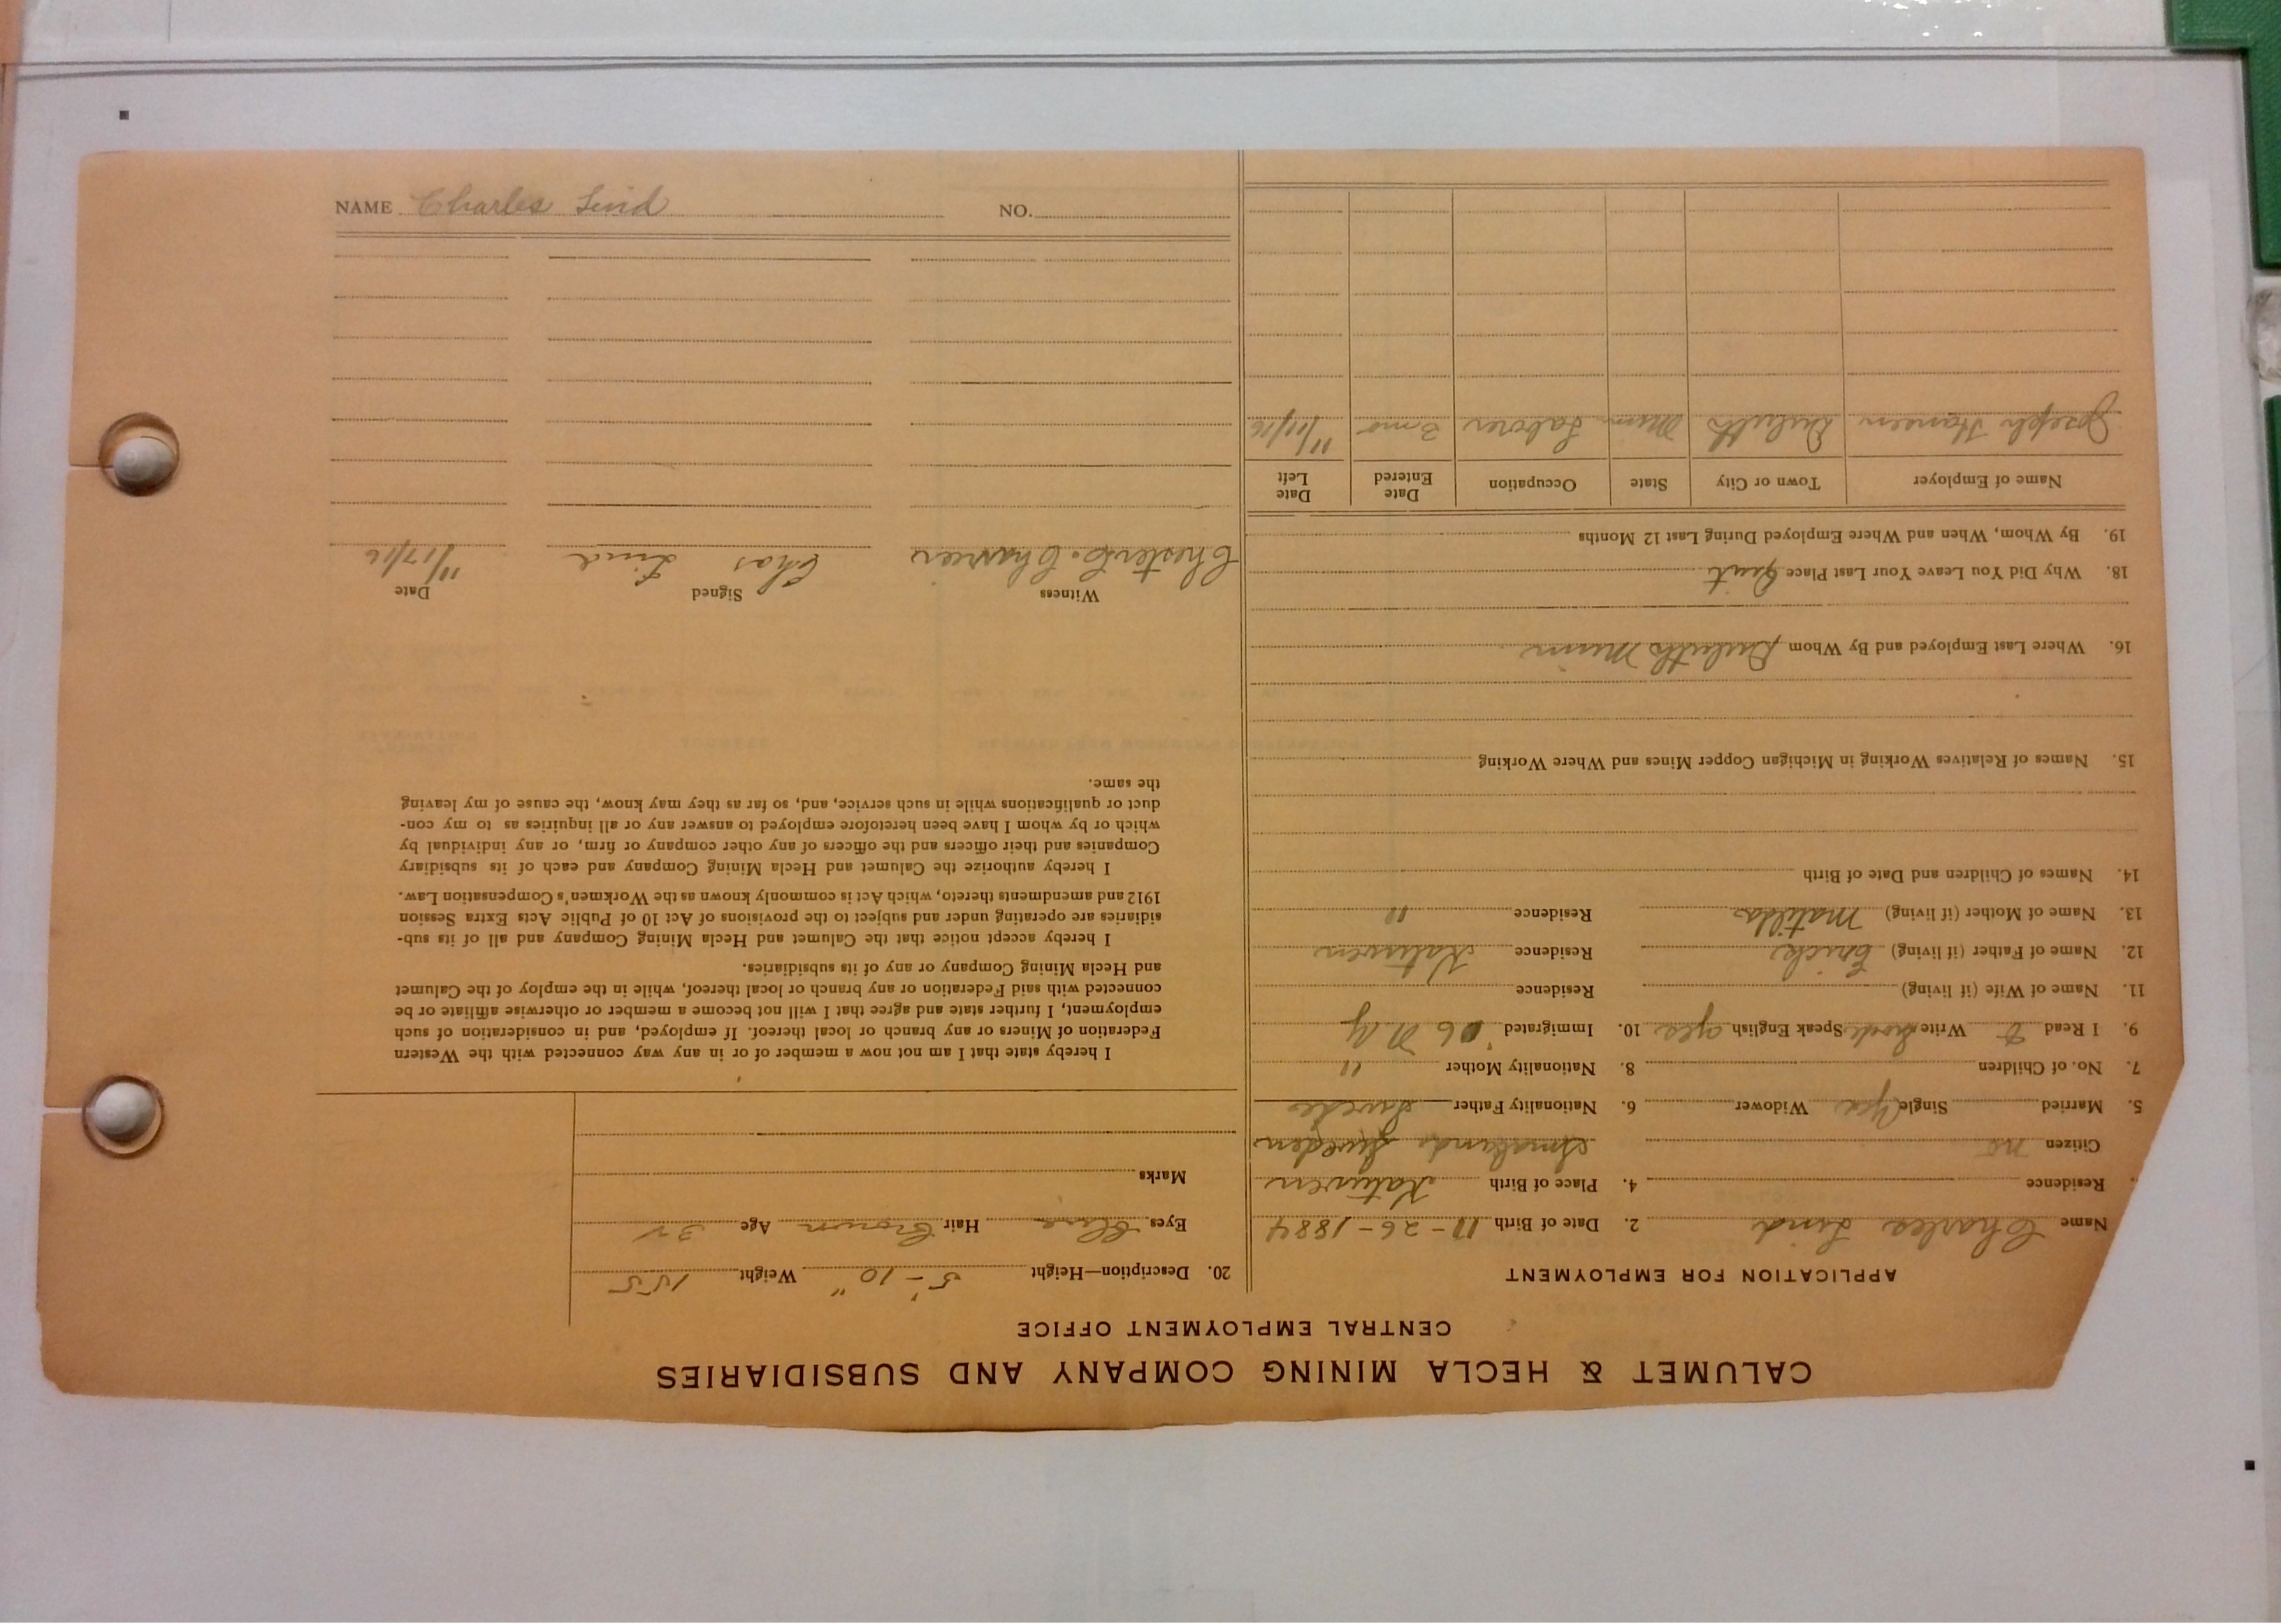 CALUMET & HECLA MINING COMPANY AND SUBSIDIARIES
CENTRAL EMPLOYMENT OFFICE
APPLICATION FOR EMPLOYMENT
Name Charles Lind 2. Date of Birth 11-26-1884
Residence 4. Place of Birth
Citizen no Smaland Sweden
5. Married Single Yes Widower 6. Nationality Father Swede
7. No. of Children 8. Nationality Mother "
9. I Read & Write Swede Speak English yes 10. Immigrated 06 N Y
11. Name of Wife (if living) Residence
12. Name of Father (if living) Erick Residence
13. Name of Mother (if living) Matilda Residence "
14. Names of Children and Date of Birth
15. Names of Relatives Working in Michigan Copper Mines and Where Working
16. Where Last Employed and By Whom Duluth Minn
18. Why Did You Leave Your Last Place Quit
19. By Whom, When and Where Employed During Last 12 Months
Name of Employer Town or City State Occupation Date Entered Date Left
Joseph Hansen Duluth Minn Laborer 3 mo 11/11/16
20. Description—Height 5'-10" Weight 155
Eyes Blue Hair Brown Age 32
Marks
I hereby state that I am not now a member of or in any way connected with the Western
Federation of Miners or any branch or local thereof. If employed, and in consideration of such
employment, I further state and agree that I will not become a member or otherwise affiliate or be
connected with said Federation or any branch or local thereof, while in the employ of the Calumet
and Hecla Mining Company or any of its subsidiaries.
I hereby accept notice that the Calumet and Hecla Mining Company and all of its sub-
sidiaries are operating under and subject to the provisions of Act 10 of Public Acts Extra Session
1912 and amendments thereto, which Act is commonly known as the Workmen's Compensation Law.
I hereby authorize the Calumet and Hecla Mining Company and each of its subsidiary
Companies and their officers and the officers of any other company or firm, or any individual by
which or by whom I have been heretofore employed to answer any or all inquiries as to my con-
duct or qualifications while in such service, and, so far as they may know, the cause of my leaving
the same.
Witness Signed Date
Chas Lind 11/17/16
NAME Charles Lind NO.